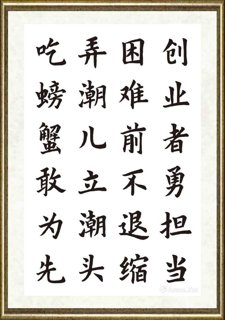 创业者勇担当
困难前不退缩
弄潮儿立潮头
吃螃蟹敢为先